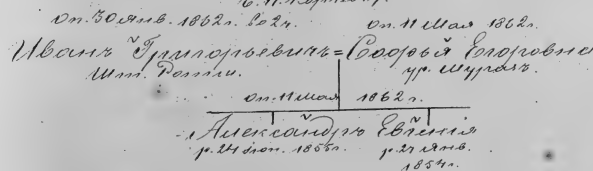 оп. 30 Янв. 1862. оп. 11 Мая 1862г.
Иванъ Григорьевичъ = Софья Егоровна
Шт. Ротм. ур. Мурачъ.
оп. 11 Мая 1862 г.
Александръ Евгенія
р. 24 1855г. р. 27 Янв.
1854г.